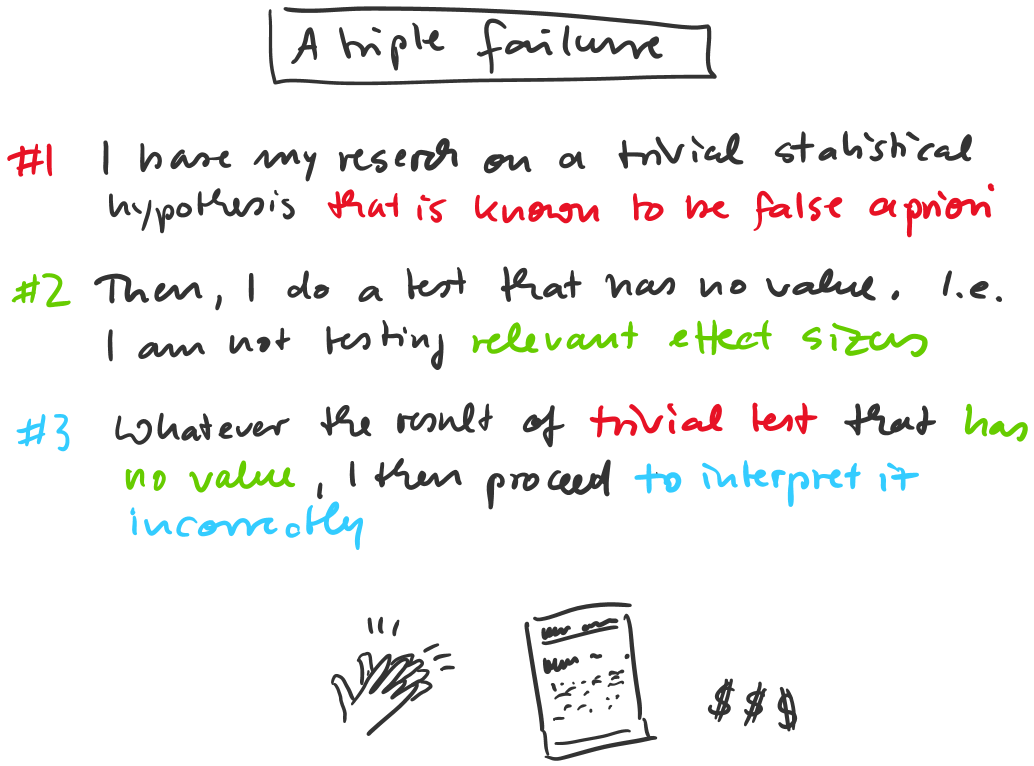 A triple failure
#1 I base my reserch on a trivial statistical
hypothesis that is known to be false apriori
#2 Then, I do a test that has no value. I.e.
I am not testing relevant effect sizes
#3 Whatever the result of trivial test that has
no value, I then proceed to interpret it
incorrectly
$$$